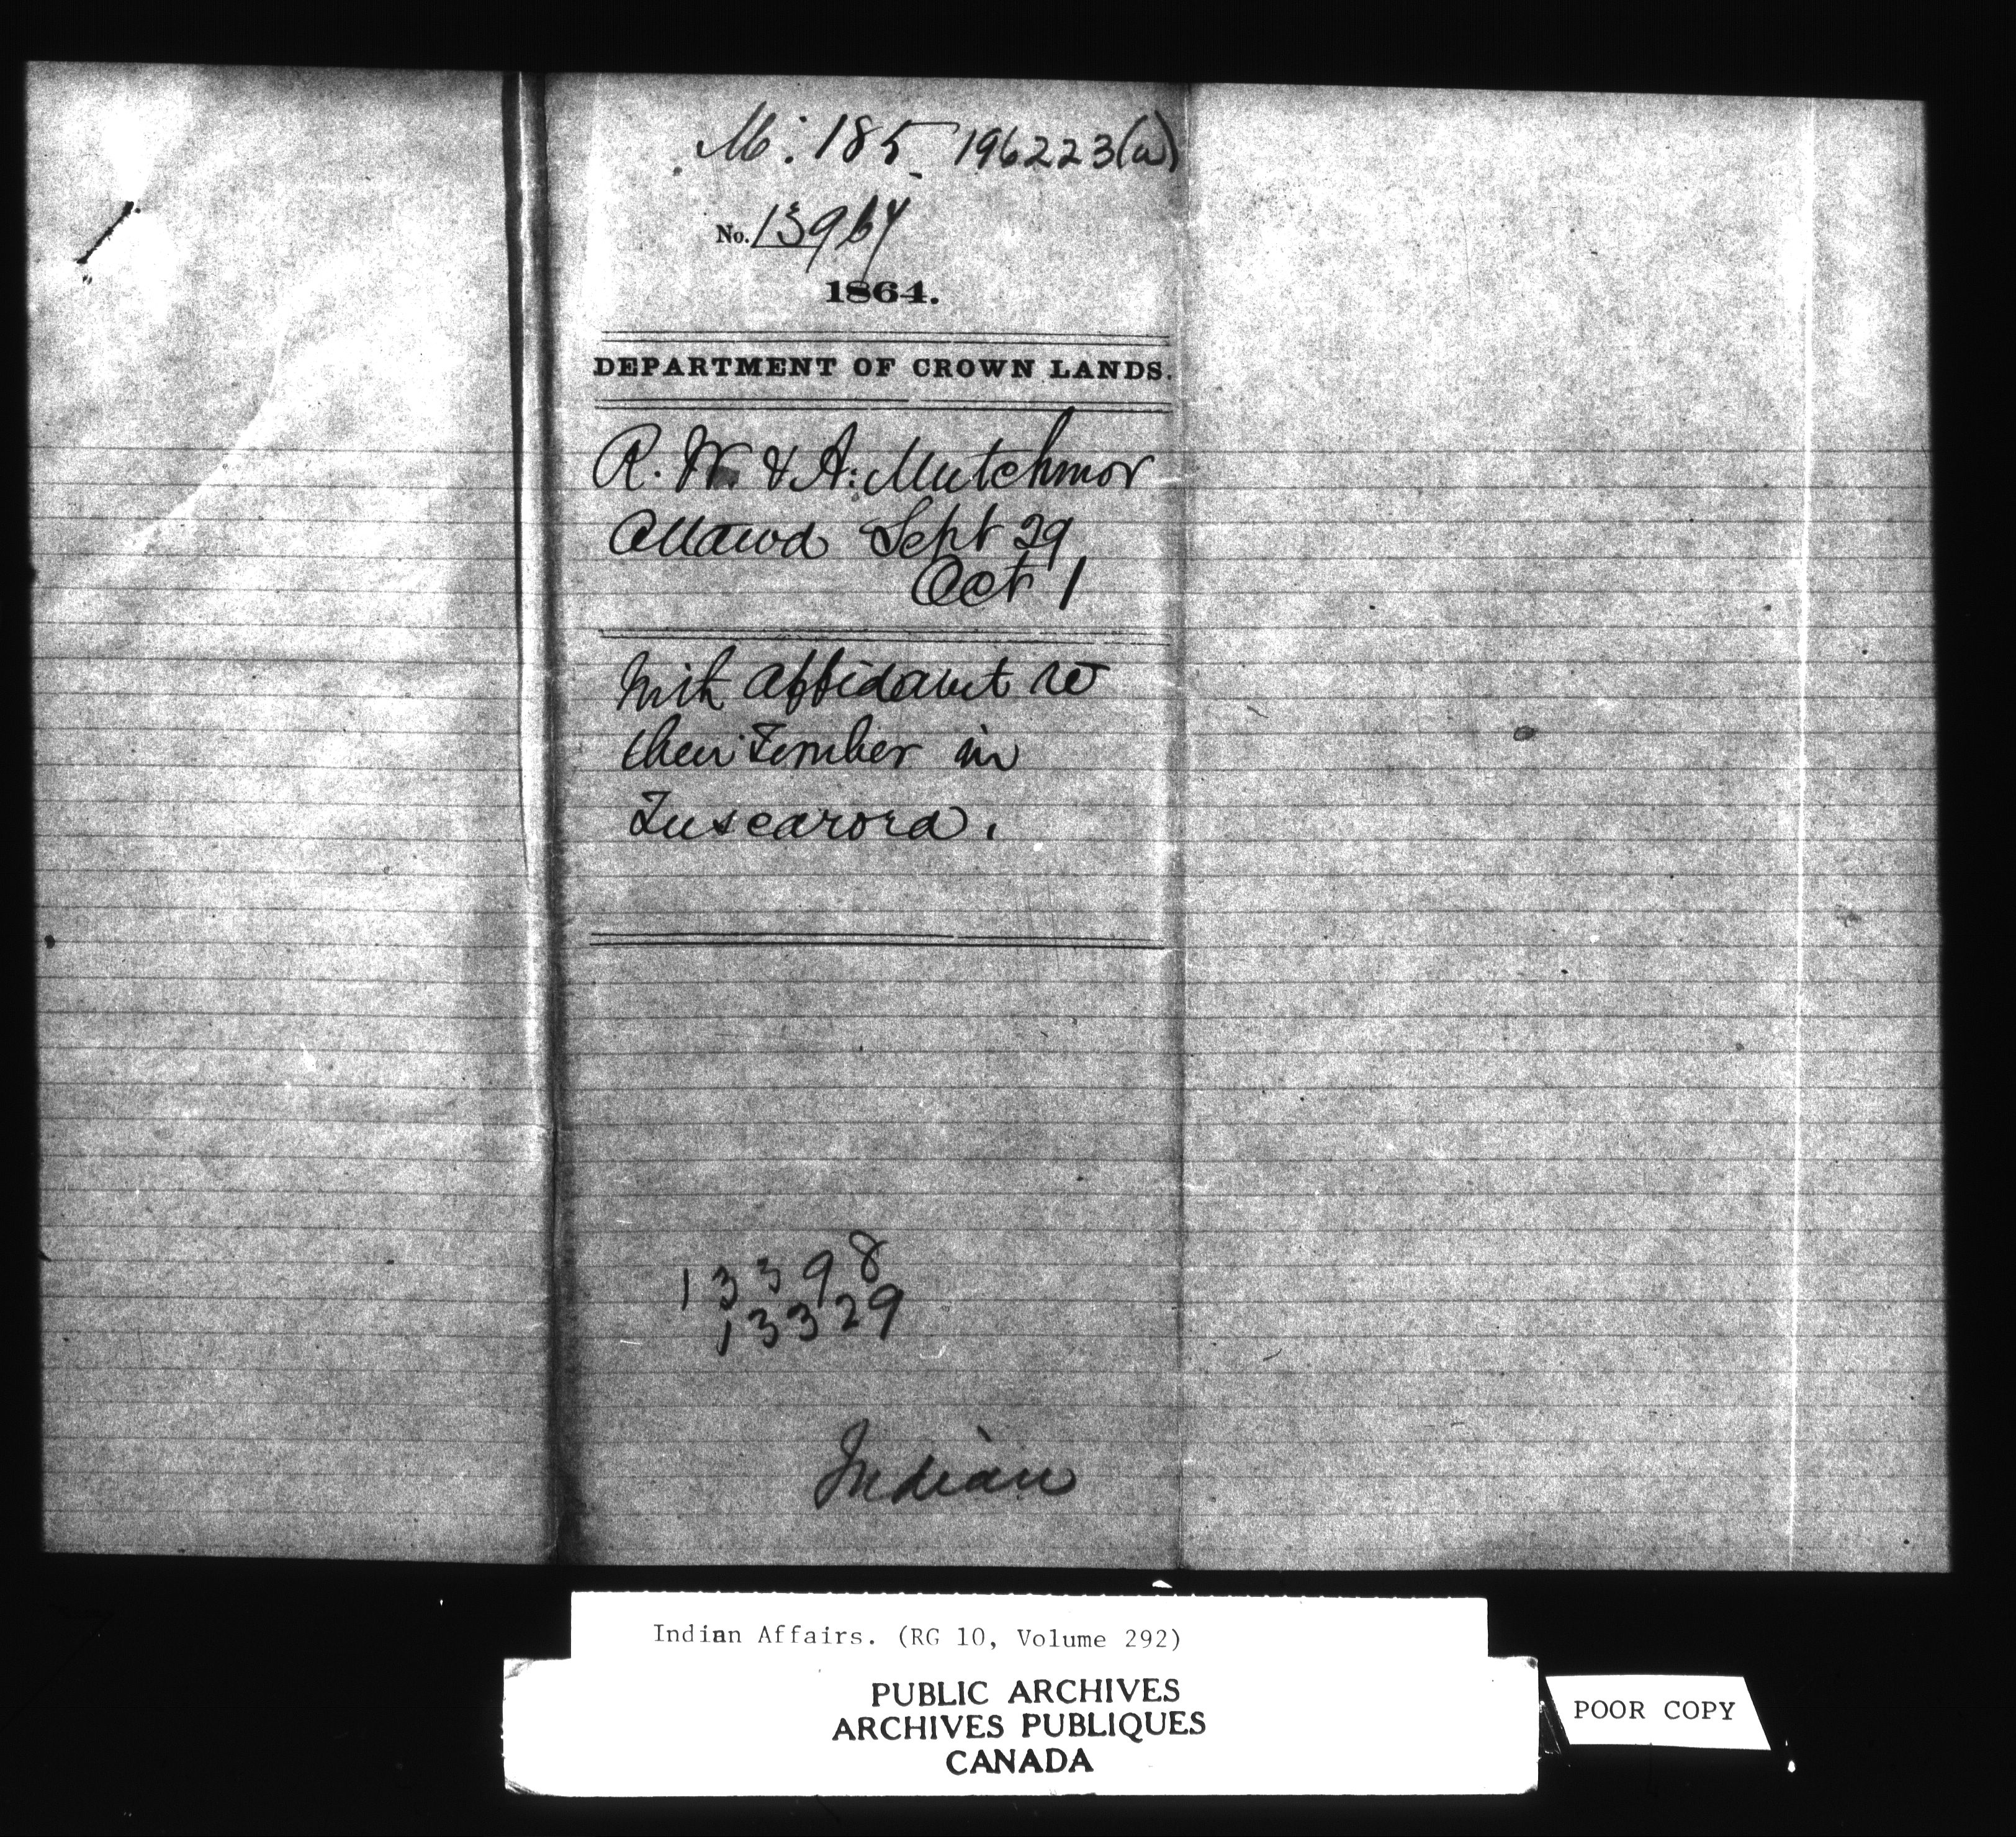 M. 185 196223(a)
No. 13964
1864.
DEPARTMENT OF CROWN LANDS.
R. W. & A. Mutchmor
Ottawa Sept 29
Oct 1
With affidavit re
their Timber in
Tuscarora.
13398
13329
Indian
Indian Affairs. (RG 10, Volume 292)
PUBLIC ARCHIVES
ARCHIVES PUBLIQUES
CANADA
POOR COPY